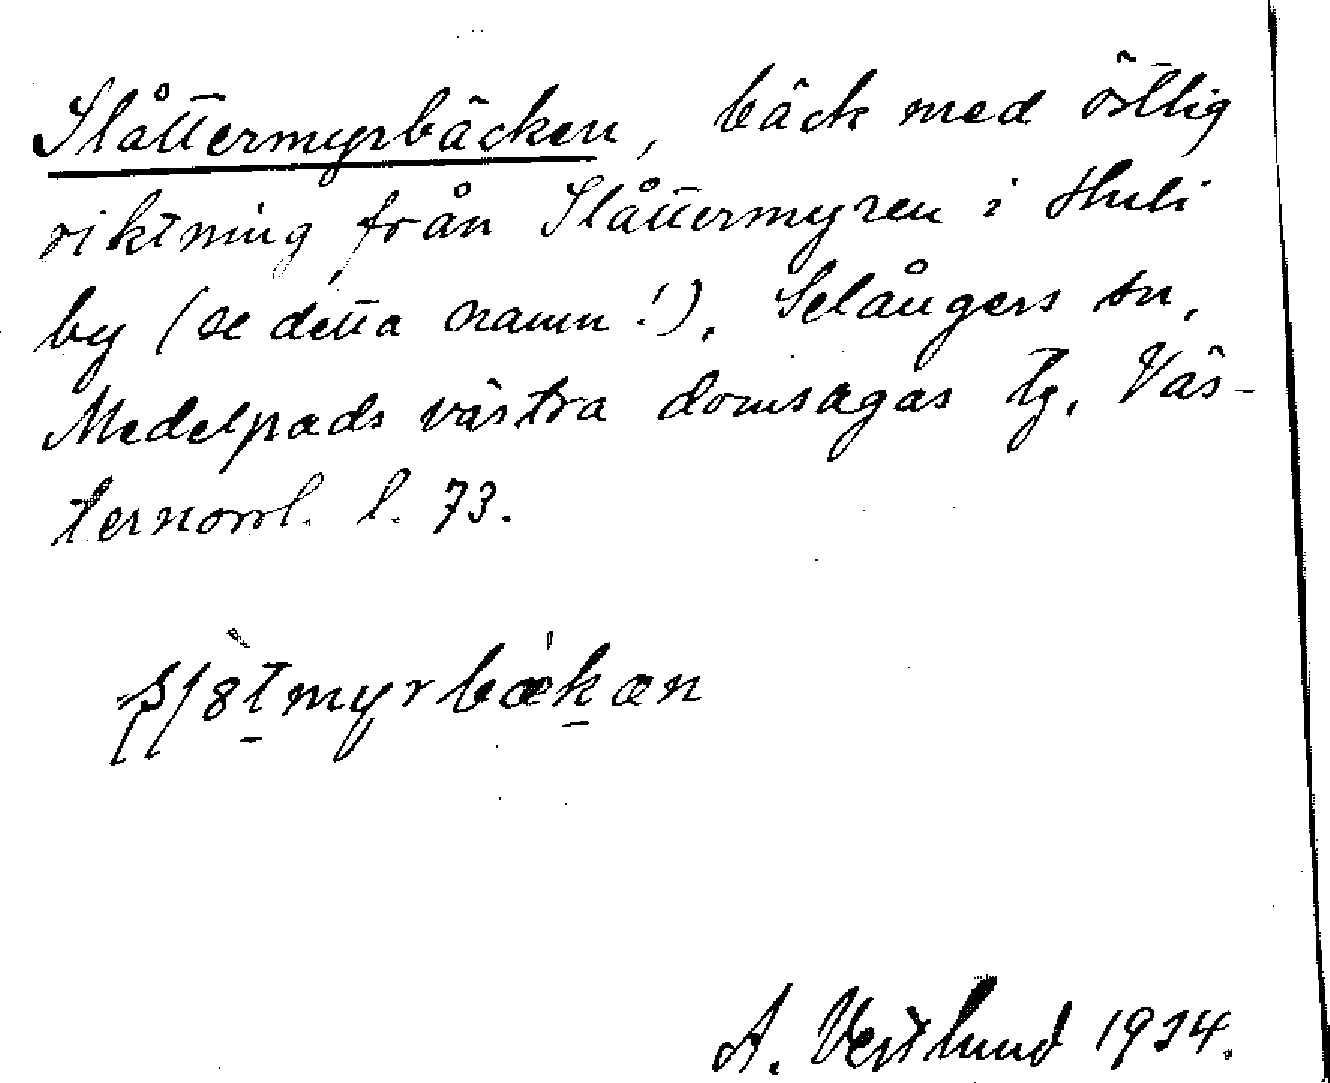 Slåttermyrbäcken, bäck med östlig
riktning från Slåttermyren i Huli
by (se detta namn!), Selångers sn,
Medelpads västra domsagas tg, Väs-
ternorrl. l. 73.
A. Vestlund 1934.